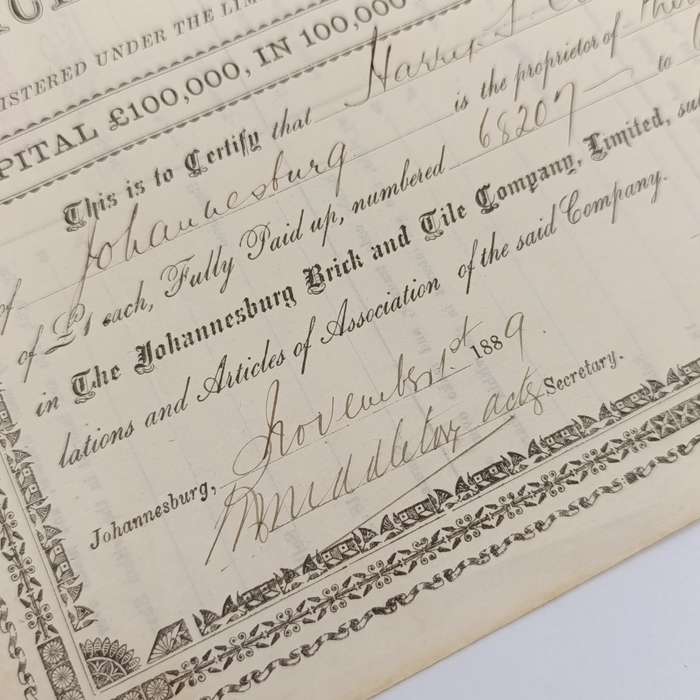 ISTERED UNDER THE LIM
PITAL £100,000, IN 100,000
This is to Certify that Harry
of Johannesburg is the proprietor of
of £1 each, Fully Paid up, numbered 68207 to
in The Johannesburg Brick and Tile Company, Limited, su
lations and Articles of Association of the said Company.
Johannesburg, November 1st 1889.
Middleton actg Secretary.